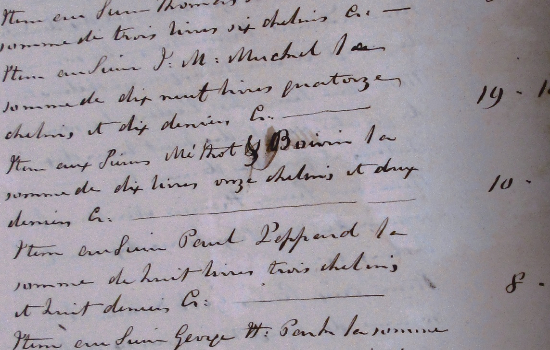 Item au Sieur Thomas
somme de trois livres six chelins Cr. —
Item au Sieur J. M. Muchel la
somme de dix neuf livres quatorze 19 - 1
chelins et dix deniers Cr. —
Item aux Sieurs Méthot & Boivin la
somme de dix livres onze chelins et deux 10 -
deniers Cr. —
Item au Sieur Paul Peppard la
somme de huit livres trois chelins
et huit deniers Cr: — 8 -
Item au Sieur George H: Park la somme